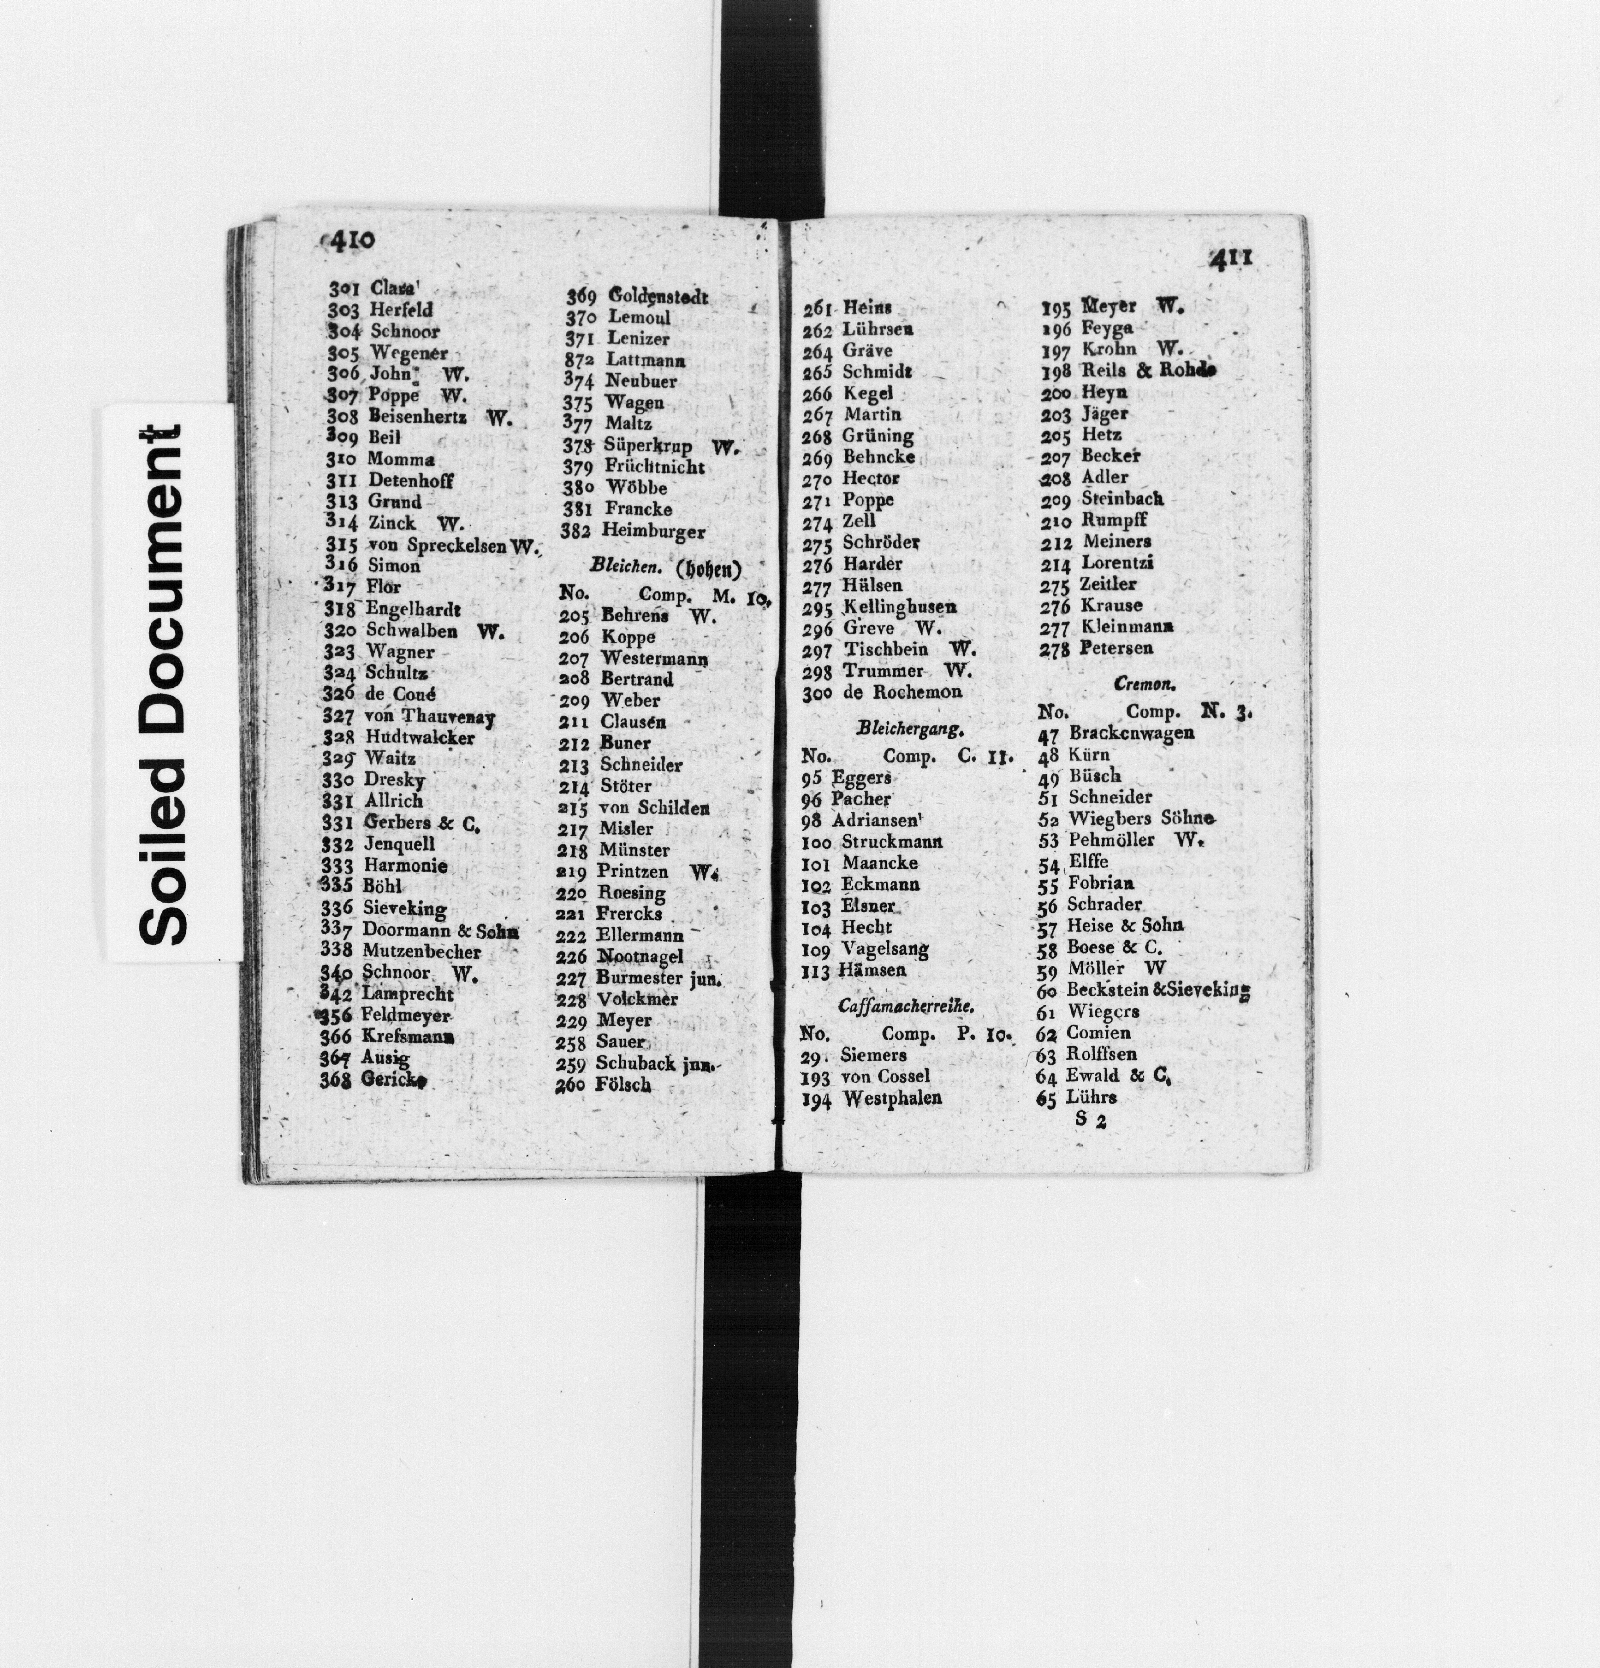 Soiled Document
410
301 Clasa
303 Herfeld
304 Schnoor
305 Wegener
306 John W.
307 Poppe W.
308 Beisenhertz W.
309 Beil
310 Momma
311 Detenhoff
313 Grund
314 Zinck W.
315 von Spreckelsen W.
316 Simon
317 Flor
318 Engelhardt
320 Schwalben W.
323 Wagner
324 Schultz
326 de Coué
327 von Thauvenay
328 Hudtwalcker
329 Waitz
330 Dresky
331 Allrich
331 Gerbers & C.
332 Jenquell
333 Harmonie
335 Böhl
336 Sieveking
337 Doormann & Sohn
338 Mutzenbecher
340 Schnoor W.
342 Lamprecht
356 Feldmeyer
366 Krefsmann
367 Ausig
368 Gericke
369 Goldenstedt
370 Lemoul
371 Lenizer
872 Lattmann
374 Neubuer
375 Wagen
377 Maltz
378 Süperkrup W.
379 Früchtnicht
380 Wöbbe
381 Francke
382 Heimburger
Bleichen. (hohen)
No. Comp. M. 10.
205 Behrens W.
206 Koppe
207 Westermann
208 Bertrand
209 Weber
211 Clausen
212 Buner
213 Schneider
214 Stöter
215 von Schilden
217 Misler
218 Münster
219 Printzen W.
220 Roesing
221 Frercks
222 Ellermann
226 Nootnagel
227 Burmester jun.
228 Volckmer
229 Meyer
258 Sauer
259 Schuback jun.
260 Fölsch
411
261 Heins
262 Lührsen
264 Gräve
265 Schmidt
266 Kegel
267 Martin
268 Grüning
269 Behncke
270 Hector
271 Poppe
274 Zell
275 Schröder
276 Harder
277 Hülsen
295 Kellinghusen
296 Greve W.
297 Tischbein W.
298 Trummer W.
300 de Rochemon
Bleichergang.
No. Comp. C. 11.
95 Eggers
96 Pacher
98 Adriansen
100 Struckmann
101 Maancke
102 Eckmann
103 Elsner
104 Hecht
109 Vagelsang
113 Hämsen
Caffamacherreihe.
No. Comp. P. 10.
29. Siemers
193 von Cossel
194 Westphalen
195 Meyer W.
196 Feyga
197 Krohn W.
198 Reils & Rohde
200 Heyn
203 Jäger
205 Hetz
207 Becker
208 Adler
209 Steinbach
210 Rumpff
212 Meiners
214 Lorentzi
275 Zeitler
276 Krause
277 Kleinmann
278 Petersen
Cremon.
No. Comp. N. 3.
47 Brackenwagen
48 Kürn
49 Büsch
51 Schneider
52 Wiegbers Söhne
53 Pehmöller W.
54 Elffe
55 Fobrian
56 Schrader
57 Heise & Sohn
58 Boese & C.
59 Möller W
60 Beckstein & Sieveking
61 Wiegers
62 Comien
63 Rolffsen
64 Ewald & C.
65 Lührs
S 2